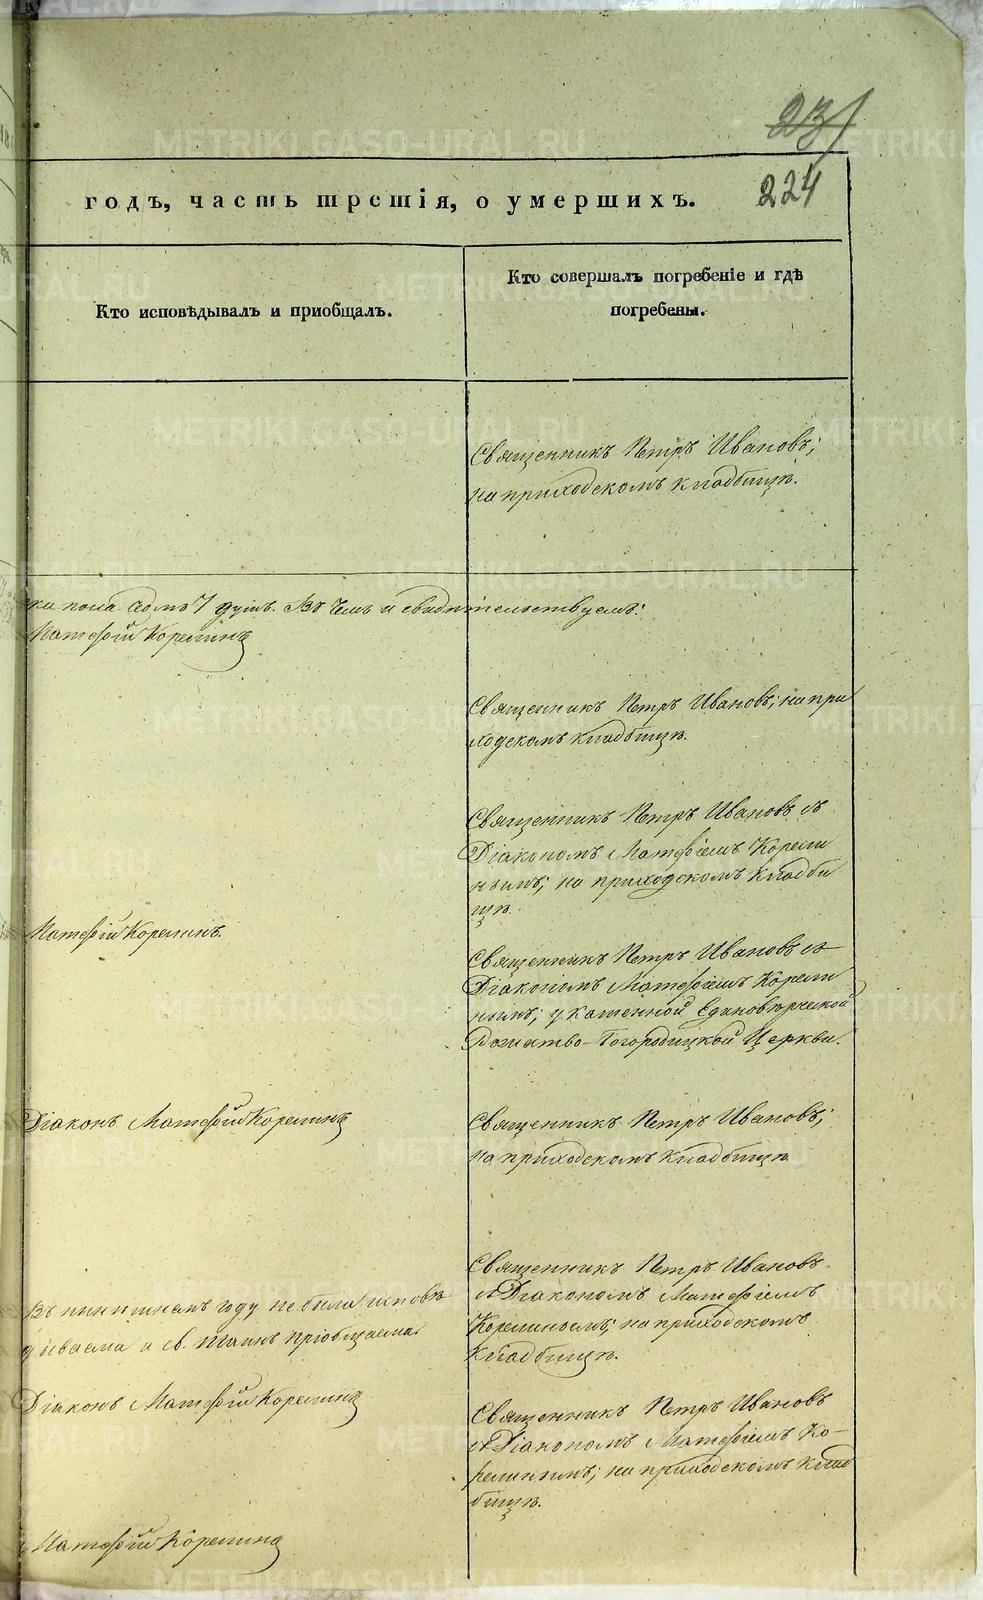 231
224
годъ, часть третія, о умершихъ.
Кто исповѣдывалъ и приобщалъ.
Кто совершалъ погребеніе и гдѣ
погребены.
Священникъ Петръ Ивановъ;
на приходскомъ кладбищѣ.
ка пола семь 7 душъ. Въ чемъ и свидѣтельствуемъ:
Матѳій Корелинъ
Священникъ Петръ Ивановъ; на при
ходскомъ кладбищѣ.
Священникъ Петръ Ивановъ съ
Діакономъ Матѳіемъ Корели
нымъ; на приходскомъ кладби
щѣ.
Матѳій Корелинъ.
Священникъ Петръ Ивановъ съ
Діакономъ Матѳіемъ Корели
нымъ; у каменной Единовѣрческой
Рождество-Богородицкой Церкви.
Діаконъ Матѳій Корелинъ
Священникъ Петръ Ивановъ;
на приходскомъ кладбищѣ
Священникъ Петръ Ивановъ
съ Діакономъ Матѳіемъ
Корелинымъ; на приходскомъ
кладбищѣ.
Въ нынѣшнемъ году не была исповѣ
дываема и св. таинъ пріобщаема.
Діаконъ Матѳій Корелинъ
Священникъ Петръ Ивановъ
съ Діакономъ Матѳіемъ Ко-
релинымъ; на приходскомъ клад
бищѣ.
Матѳій Корелинъ
METRIKI.GASO-URAL.RU